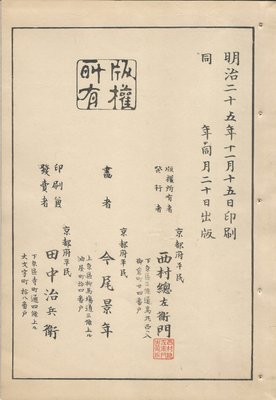 明治二十五年十一月十五日印刷
同年同月二十日出版
版權所有
版權所有者
發行者
京都府平民
西村總左衞門
畫者
京都府平民
今尾景年
上京區柳馬場通三條上ル
油屋町廿四番戸
印刷兼
發賣者
京都府平民
田中治兵衞
下京區寺町通四條上ル
大文字町十八番戸